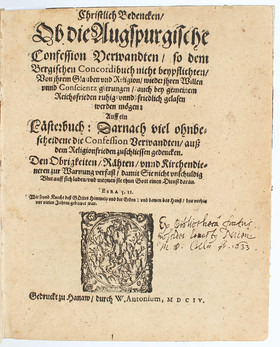 Christlich Bedencken/
Ob die Augspurgische
Confession Verwandten/ so dem
Bergischen Concordibuch nicht beypflichten/
Von ihrem Glauben und Religion/ wieder ihren Willen
unnd Conscientz getrungen/ auch bey gemeinem
Reichsfrieden ruhig unnd friedlich gelasen
werden mögen:
Auff ein
Lästerbuch: Darnach viel ohnbe-
scheidene die Confession Verwandten/ auß
dem Religionfrieden zuschliessen gedencken.
Den Obrigkeiten/ Räthen/ unnd Kirchendie-
neren zur Warnung verfast/ damit Sie nicht unschuldig
Blut auff sich laden/ und meynen sie thun Gott einen Dienst daran.
ESRA 5. 11.
Wir sind Knecht deß Gottes Himmels und der Erden/ und bawen das Hauß/ das vorhin
vor vielen Jahren gebawet war.
Ex Bibliotheca
1633
Gedruckt zu Hanaw/ durch W. Antonium, MDCIV.